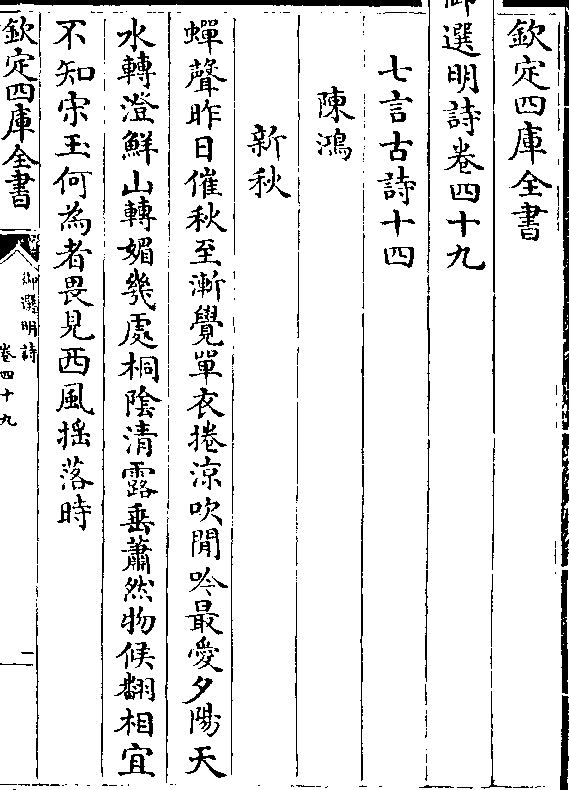 欽定四庫全書
御選明詩卷四十九
七言古詩十四
陳鴻
新秋
蟬聲昨日催秋至漸覺單衣捲涼吹閒吟最愛夕陽天
水轉澄鮮山轉媚幾處桐陰清露垂蕭然物候翻相宜
不知宋玉何為者畏見西風揺落時
欽定四庫全書
御選明詩
卷四十九
一